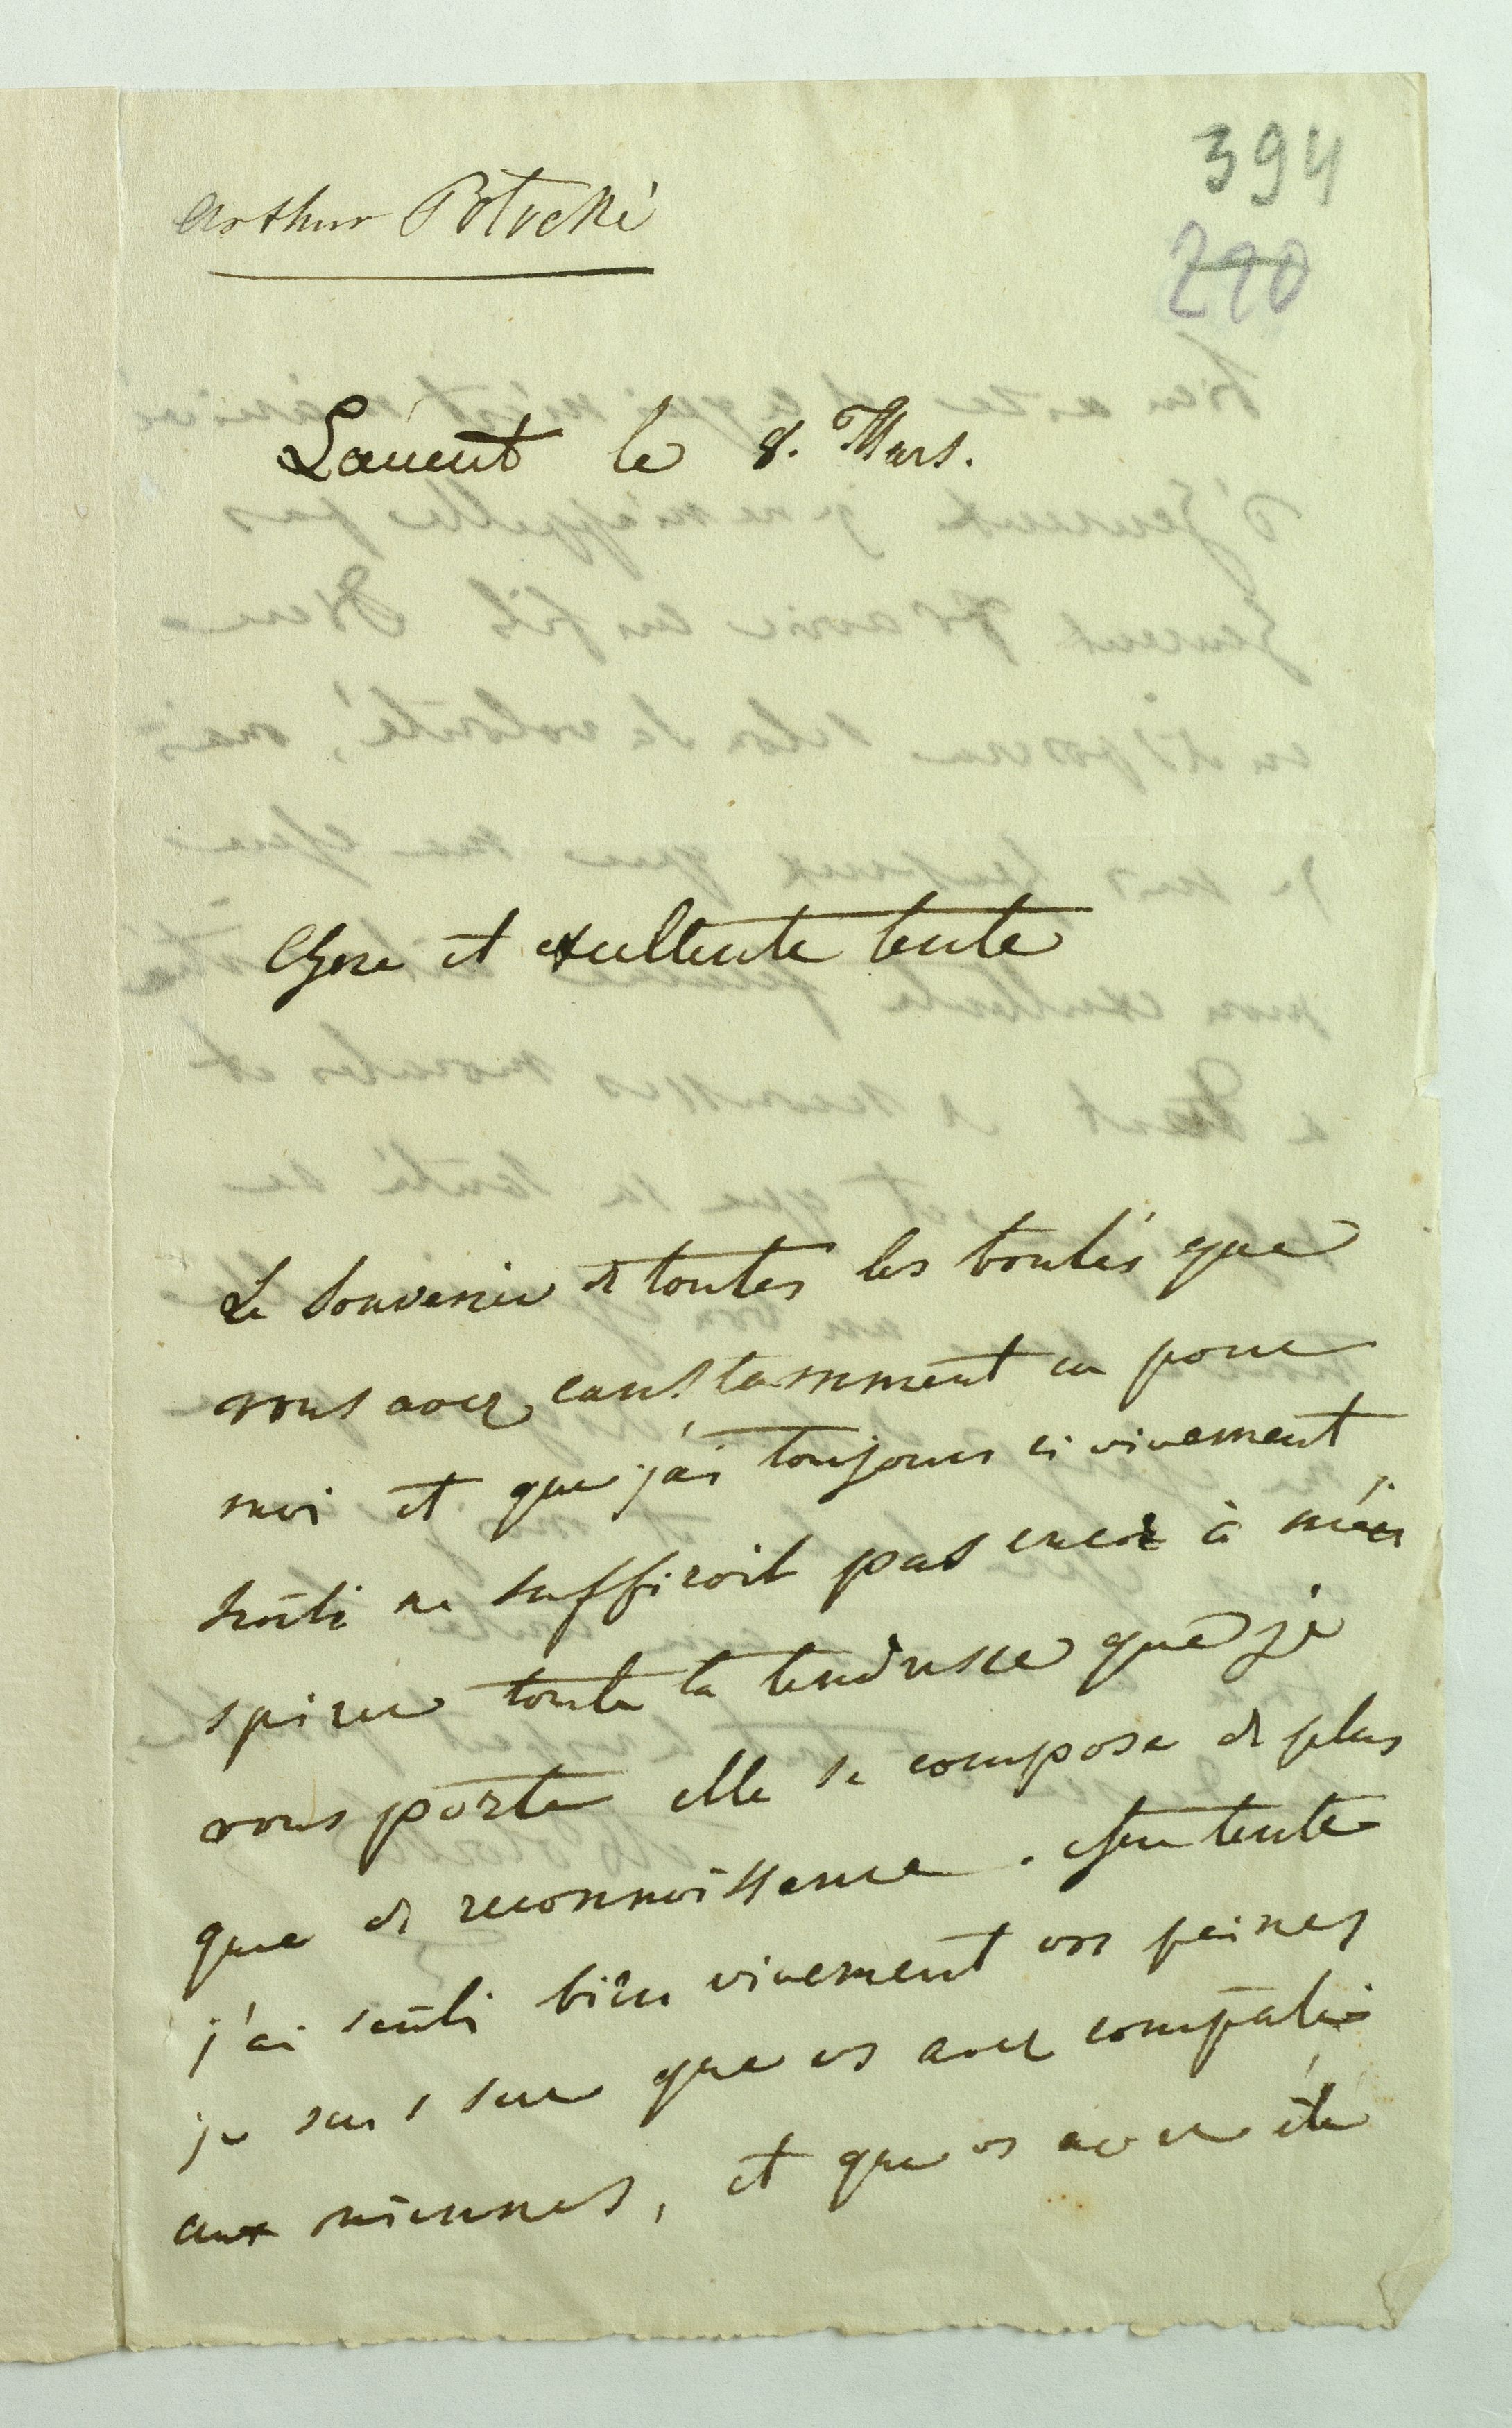 394
290
Arthur Potocki
Lancut le 8. Mars.
Chere et exellente tente
Le souvenir de toutes les bontés que
vous avez constamment eu pour
moi et que j'ai toujours si vivement
senti ne suffiroit pas encor à m'in
spirer toute la tendresse que je
vous porte elle se compose de plus
que de reconnoissance. Chere tente
j'ai senti bien vivement vos peines
je suis sur que vs avez compati
aux miennes, et que vs avez été